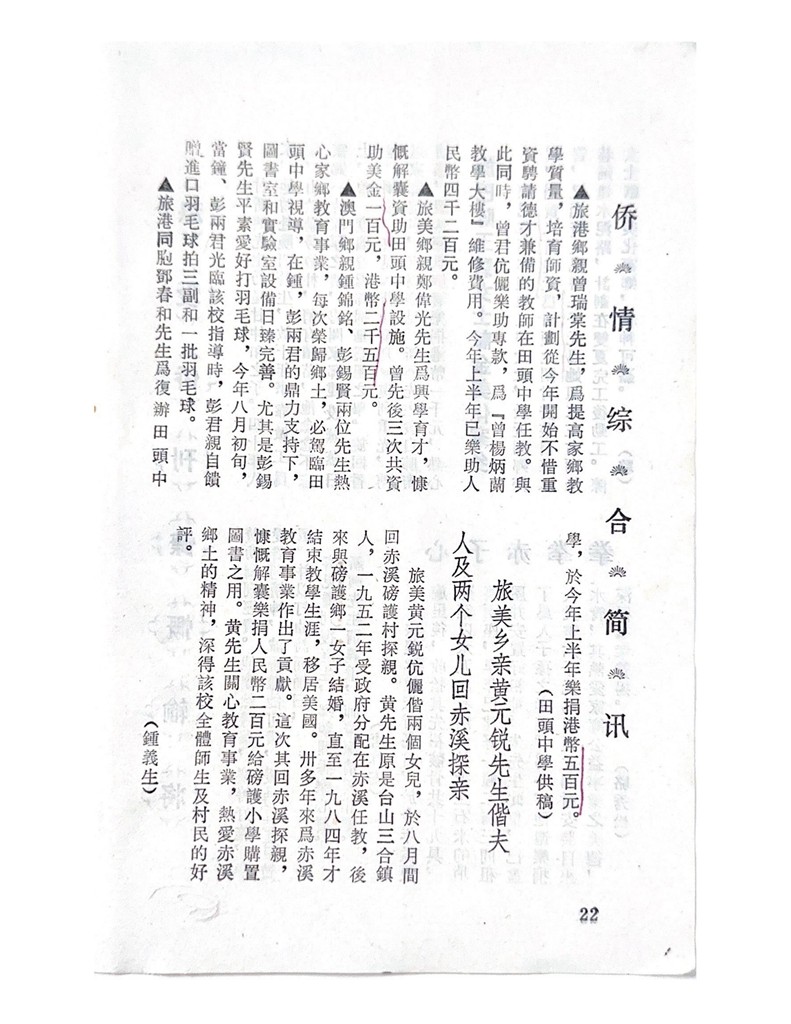 侨情综合简讯
▲旅港鄉親曾瑞棠先生，爲提高家鄉教
學質量，培育師資，計劃從今年開始不惜重
資聘請德才兼備的教師在田頭中學任教。與
此同時，曾君伉儷樂助專款，爲『曾楊炳蘭
教學大樓』維修費用。今年上半年已樂助人
民幣四千二百元。
▲旅美鄉親鄭偉光先生爲興學育才，慷
慨解囊資助田頭中學設施。曾先後三次共資
助美金一百元，港幣二千五百元。
▲澳門鄉親鍾錦銘、彭錫賢兩位先生熱
心家鄉教育事業，每次榮歸鄉土，必駕臨田
頭中學視導，在鍾，彭兩君的鼎力支持下，
圖書室和實驗室設備日臻完善。尤其是彭錫
賢先生平素愛好打羽毛球，今年八月初旬，
當鐘、彭兩君光臨該校指導時，彭君親自饋
贈進口羽毛球拍三副和一批羽毛球。
▲旅港同胞鄧春和先生爲復辦田頭中
學，於今年上半年樂捐港幣五百元。
（田頭中學供稿）
旅美乡亲黄元锐先生偕夫
人及两个女儿回赤溪探亲
旅美黄元鋭伉儷偕兩個女兒，於八月間
回赤溪磅護村探親。黄先生原是台山三合鎮
人，一九五二年受政府分配在赤溪任教，後
來與磅護鄉一女子結婚，直至一九八四年才
結束教學生涯，移居美國。卅多年來爲赤溪
教育事業作出了貢獻。這次其回赤溪探親，
慷慨解囊樂捐人民幣二百元給磅護小學購置
圖書之用。黄先生關心教育事業，熱愛赤溪
鄉土的精神，深得該校全體師生及村民的好
評。
（鍾義生）
22